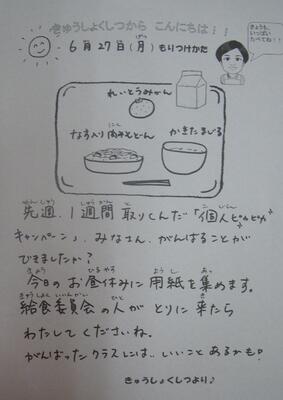 きゅうしょくしつから こんにちは!!
6月27日(月) もりつけかた
きょうも、
いっぱい
たべてね!!
れいとうみかん
なす入り肉みそどん
かきたまじる
先週、1週間 取りくんだ「個人ピカピカ
キャンペーン」、みなさん、がんばることが
できましたか?
今日の お昼休みに 用紙を 集めます。
給食委員会の 人が とりに 来たら
わたして くださいね。
がんばった クラスには‥ いいこと あるかも!
きゅうしょくしつより♪